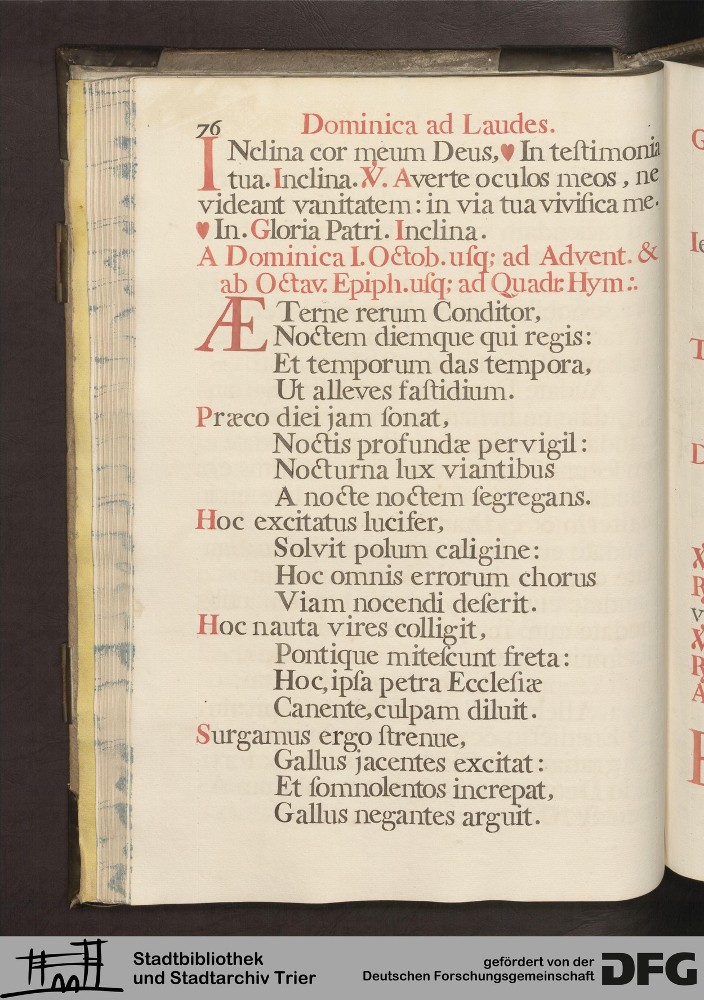 76 Dominica ad Laudes.
INclina cor meum Deus,♥ In teſtimonia
tua. Inclina. ℣. Averte oculos meos, ne
videant vanitatem: in via tua vivifica me.
♥ In. Gloria Patri. Inclina.
A Dominica I. Octob. uſq; ad Advent. &
ab Octav. Epiph. uſq; ad Quadr. Hym:.
ÆTerne rerum Conditor,
Noctem diemque qui regis:
Et temporum das tempora,
Ut alleves faſtidium.
Præco diei jam ſonat,
Noctis profundæ pervigil:
Nocturna lux viantibus
A nocte noctem ſegregans.
Hoc excitatus lucifer,
Solvit polum caligine:
Hoc omnis errorum chorus
Viam nocendi deſerit.
Hoc nauta vires colligit,
Pontique miteſcunt freta:
Hoc, ipſa petra Eccleſiæ
Canente, culpam diluit.
Surgamus ergo ſtrenue,
Gallus jacentes excitat:
Et ſomnolentos increpat,
Gallus negantes arguit.
Stadtbibliothek
und Stadtarchiv Trier
gefördert von der
Deutschen Forschungsgemeinschaft
DFG